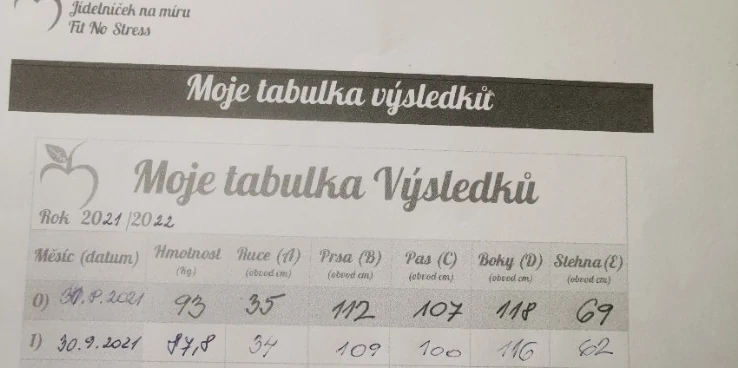 Jídelníček na míru
Fit No Stress
Moje tabulka výsledků
Moje tabulka Výsledků
Rok 2021/2022
Měsíc (datum) Hmotnost (kg) Ruce (A) (obvod cm) Prsa (B) (obvod cm) Pas (C) (obvod cm) Boky (D) (obvod cm) Stehna (E) (obvod cm)
0) 30.8.2021 93 35 112 107 118 69
1) 30.9.2021 87,8 34 109 100 116 62